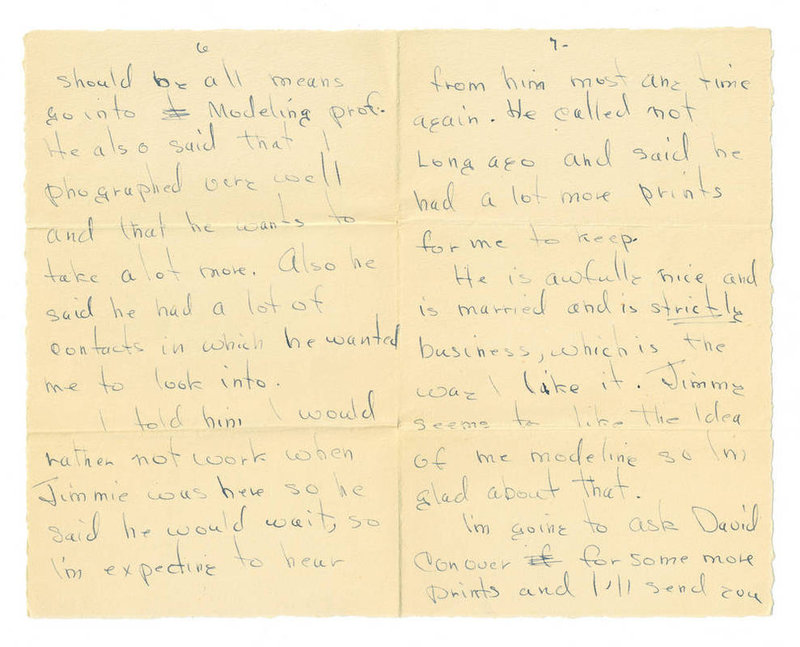 6
should by all means
go into Modeling prof.
He also said that I
phographed very well
and that he wants to
take a lot more. Also he
said he had a lot of
contacts in which he wanted
me to look into.
I told him I would
rather not work when
Jimmie was here so he
said he would wait, so
I'm expecting to hear
7-
from him most any time
again. He called not
Long ago and said he
had a lot more prints
for me to keep.
He is awfully nice and
is married and is strictly
business, which is the
way I like it. Jimmy
seems to like the Idea
of me modeling so I'm
glad about that.
I'm going to ask David
Conover for some more
prints and I'll send you